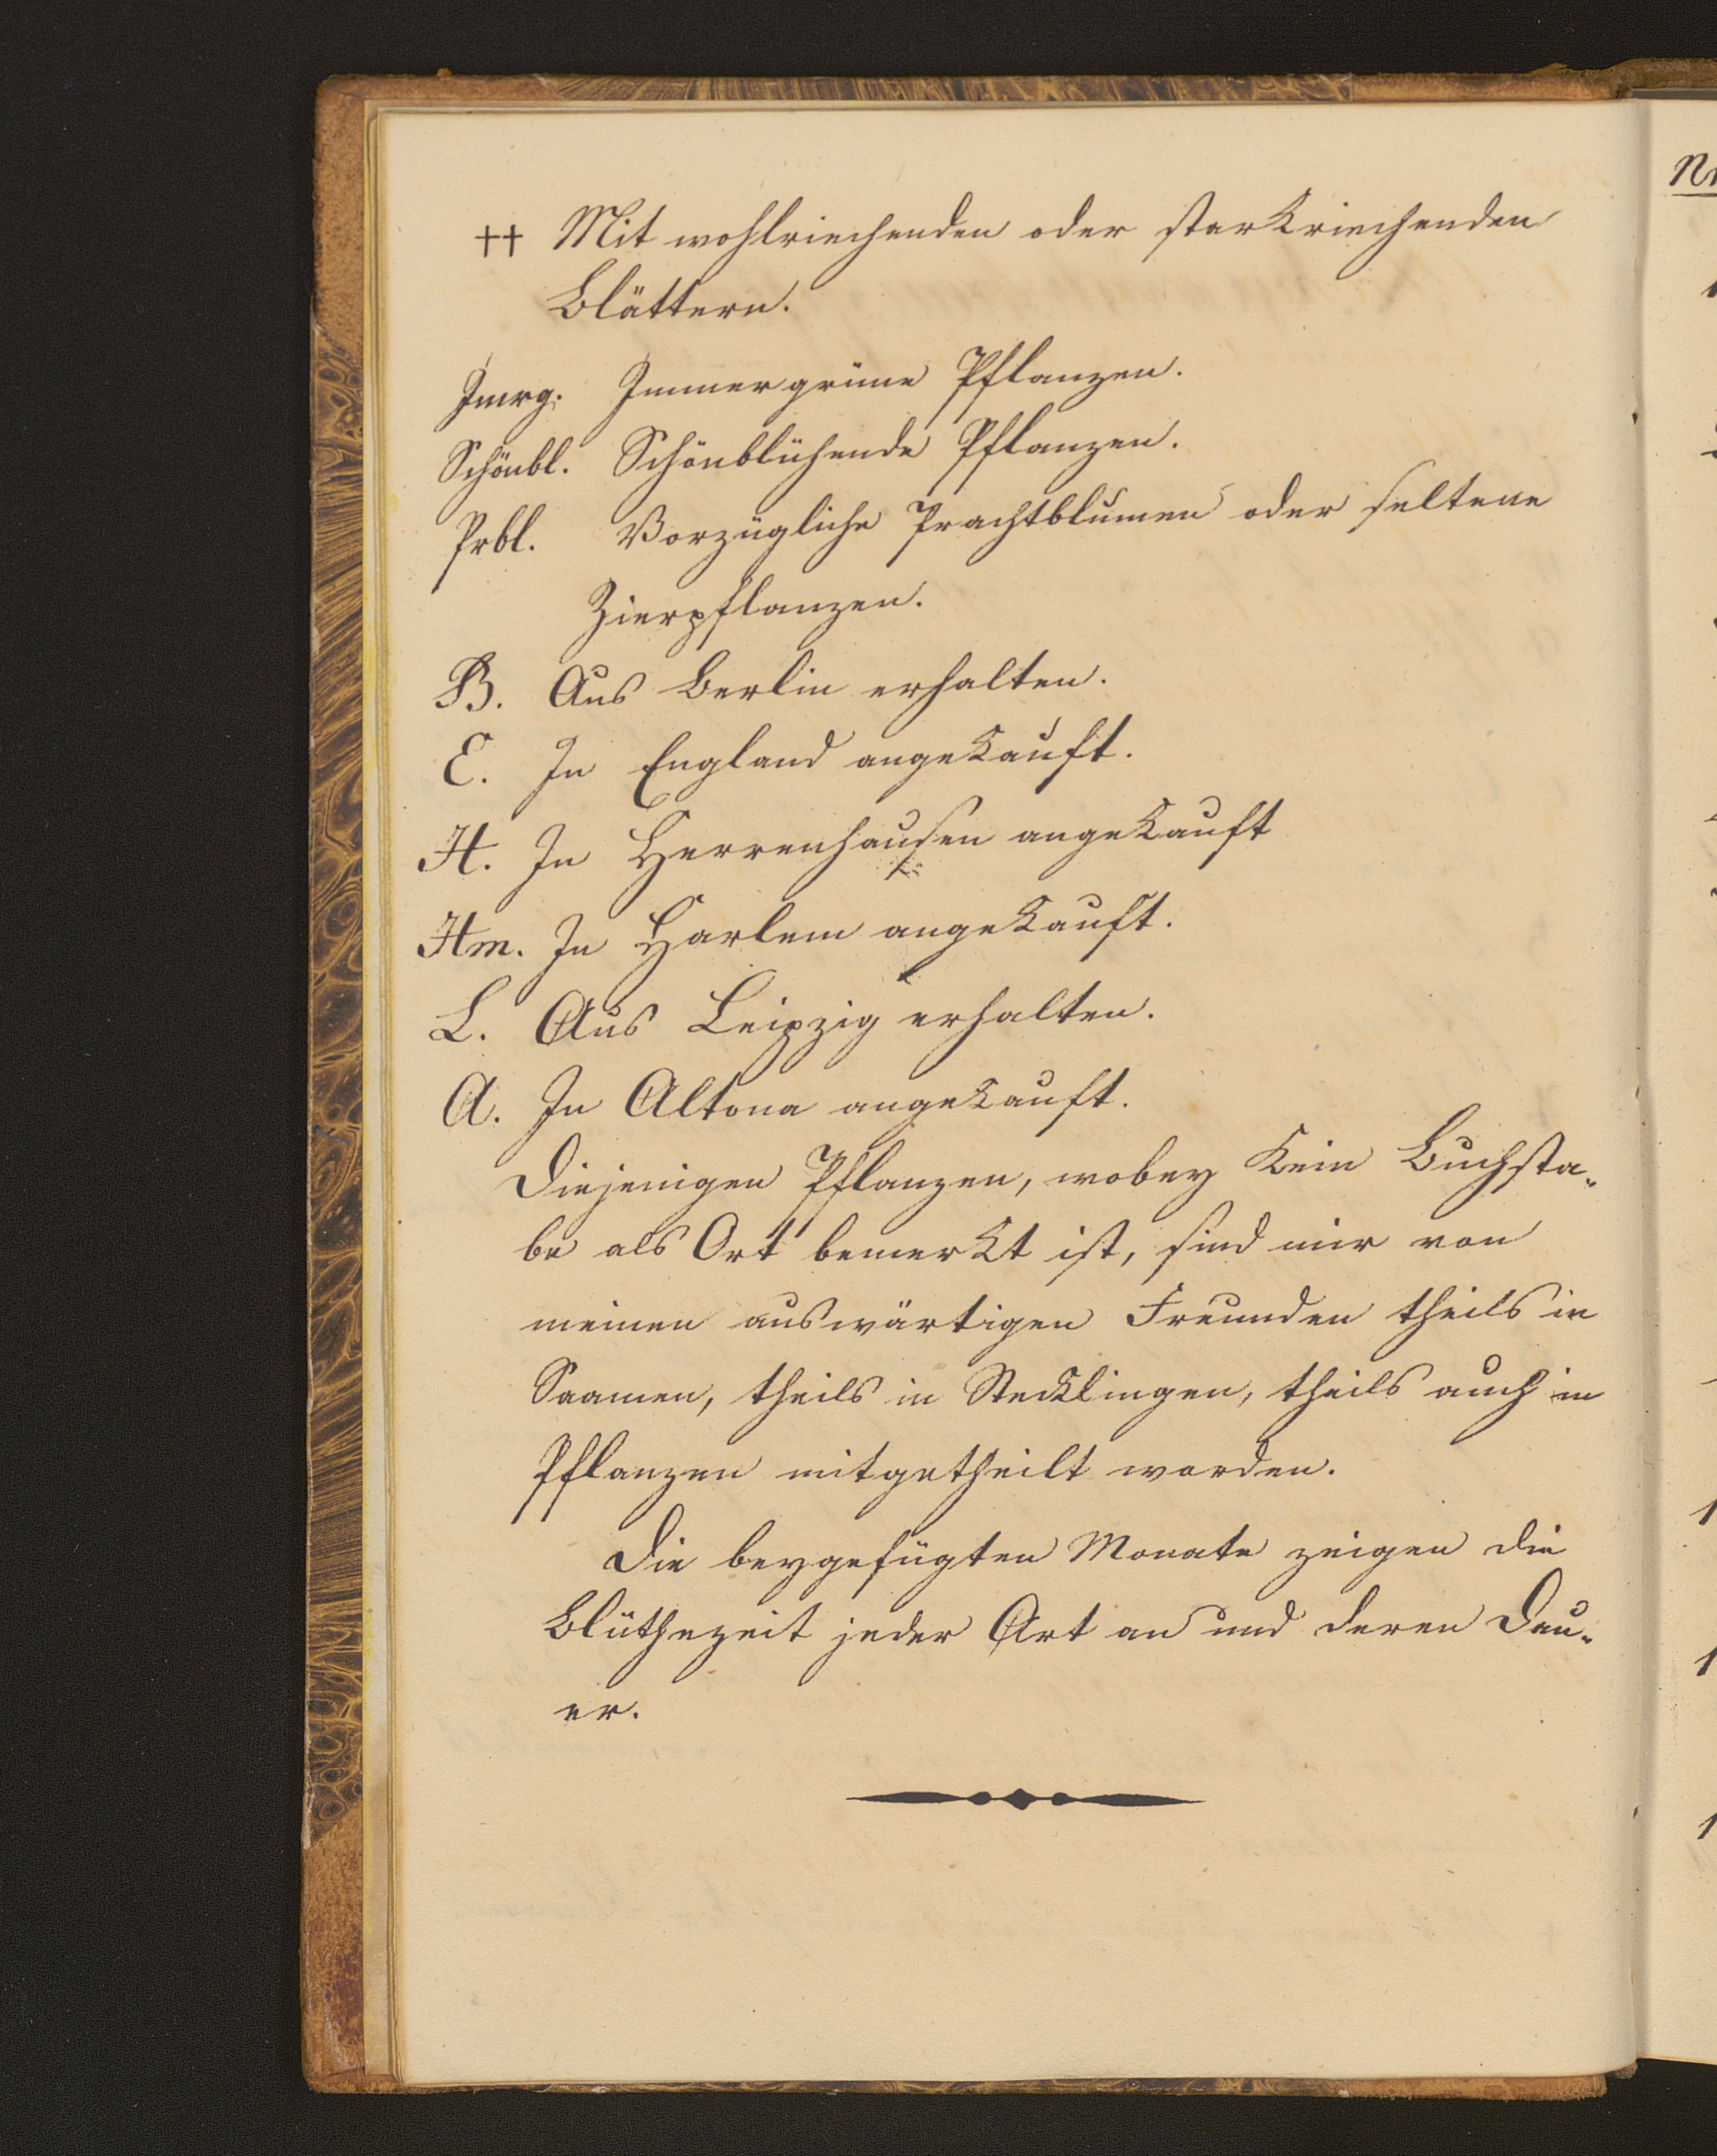 †† Mit wohlriechenden oder starkriechenden
Blättern.
Imrg. Immergrüne Pflanzen.
Schönbl. Schönblühende Pflanzen.
Prbl. Vorzügliche Prachtblumen oder seltene
Zierpflanzen.
B. Aus Berlin erhalten.
E. In England angekauft.
H. In Herrenhausen angekauft
Hm. In Harlem angekauft.
L. Aus Leipzig erhalten.
A. In Altona angekauft.
Diejenigen Pflanzen, wobey kein Buchsta„
be als Ort bemerkt ist, sind mir von
meinen auswärtigen Freunden theils in
Saamen, theils in Stecklingen, theils auch in
Pflanzen mitgetheilt worden.
Die beygefügten Monate zeigen die
Blüthezeit jeder Art an und deren Dau„
er.